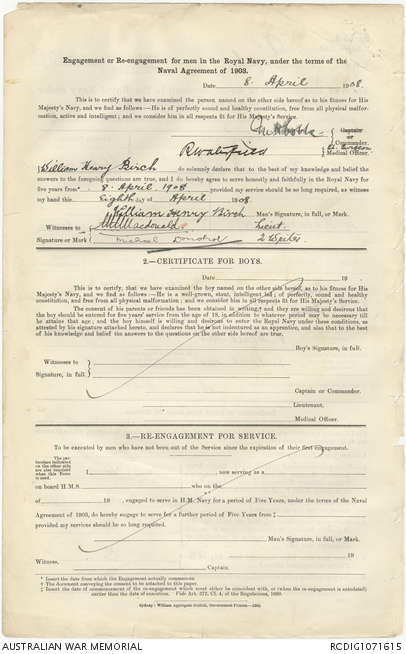 Engagement or Re-engagement for men in the Royal Navy, under the terms of the
Naval Agreement of 1903.
Date 8 April 1908.
This is to certify that we have examined the person named on the other side hereof as to his fitness for His
Majesty's Navy, and we find as follows:—He is of perfectly sound and healthy constitution, free from all physical malfor-
mation, active and intelligent; and we consider him in all respects fit for His Majesty's Service.
Captain or
Commander.
Medical Officer.
I William Henry Birch do solemnly declare that to the best of my knowledge and belief the
answers to the foregoing questions are true, and I do hereby agree to serve honestly and faithfully in the Royal Navy for
five years from* 8 April 1908 provided my service should be so long required, as witness
my hand this Eighth day of April 1908
William Henry Birch Man's Signature, in full, or Mark.
Witnesses to Macdonald Lieut.
Signature or Mark Michael 2 Writer
2.—CERTIFICATE FOR BOYS.
Date 19
This is to certify, that we have examined the boy named on the other side hereof, as to his fitness for His
Majesty's Navy, and we find as follows:—He is a well-grown, stout, intelligent lad; of perfectly, sound and healthy
constitution, and free from all physical malformation; and we consider him in all respects fit for His Majesty's Service.
The consent of his parents or friends has been obtained in writing,† and they are willing and desirous that
the boy should be entered for five years' service from the age of 18, in addition to whatever period may be necessary till
he attains that age; and the boy himself is willing and desirous to enter the Royal Navy under these conditions, as
attested by his signature attached hereto, and declares that he is not indentured as an apprentice, and also that to the best
of his knowledge and belief the answers to the questions on the other side hereof are true.
Boy's Signature, in full.
Witnesses to
Signature, in full
Captain or Commander.
Lieutenant.
Medical Officer.
3.—RE-ENGAGEMENT FOR SERVICE.
To be executed by men who have not been out of the Service since the expiration of their first engagement.
I now serving as a
on board H.M.S. who on the
of 19 , engaged to serve in H.M. Navy for a period of Five Years, under the terms of the Naval
Agreement of 1903, do hereby engage to serve for a further period of Five Years from‡
provided my services should be so long required.
Man's Signature, in full, or Mark.
19
Witness,
Captain
* Insert the date from which the Engagement actually commences.
† The document conveying the consent to be attached to this paper.
‡ Insert the date of commencement of the re-engagement which must either be coincident with, or (when the re-engagement is antedated)
earlier than the date of execution. Vide Art. 372, Cl. 4, of the Regulations, 1899.
AUSTRALIAN WAR MEMORIAL
RCDIG1071615